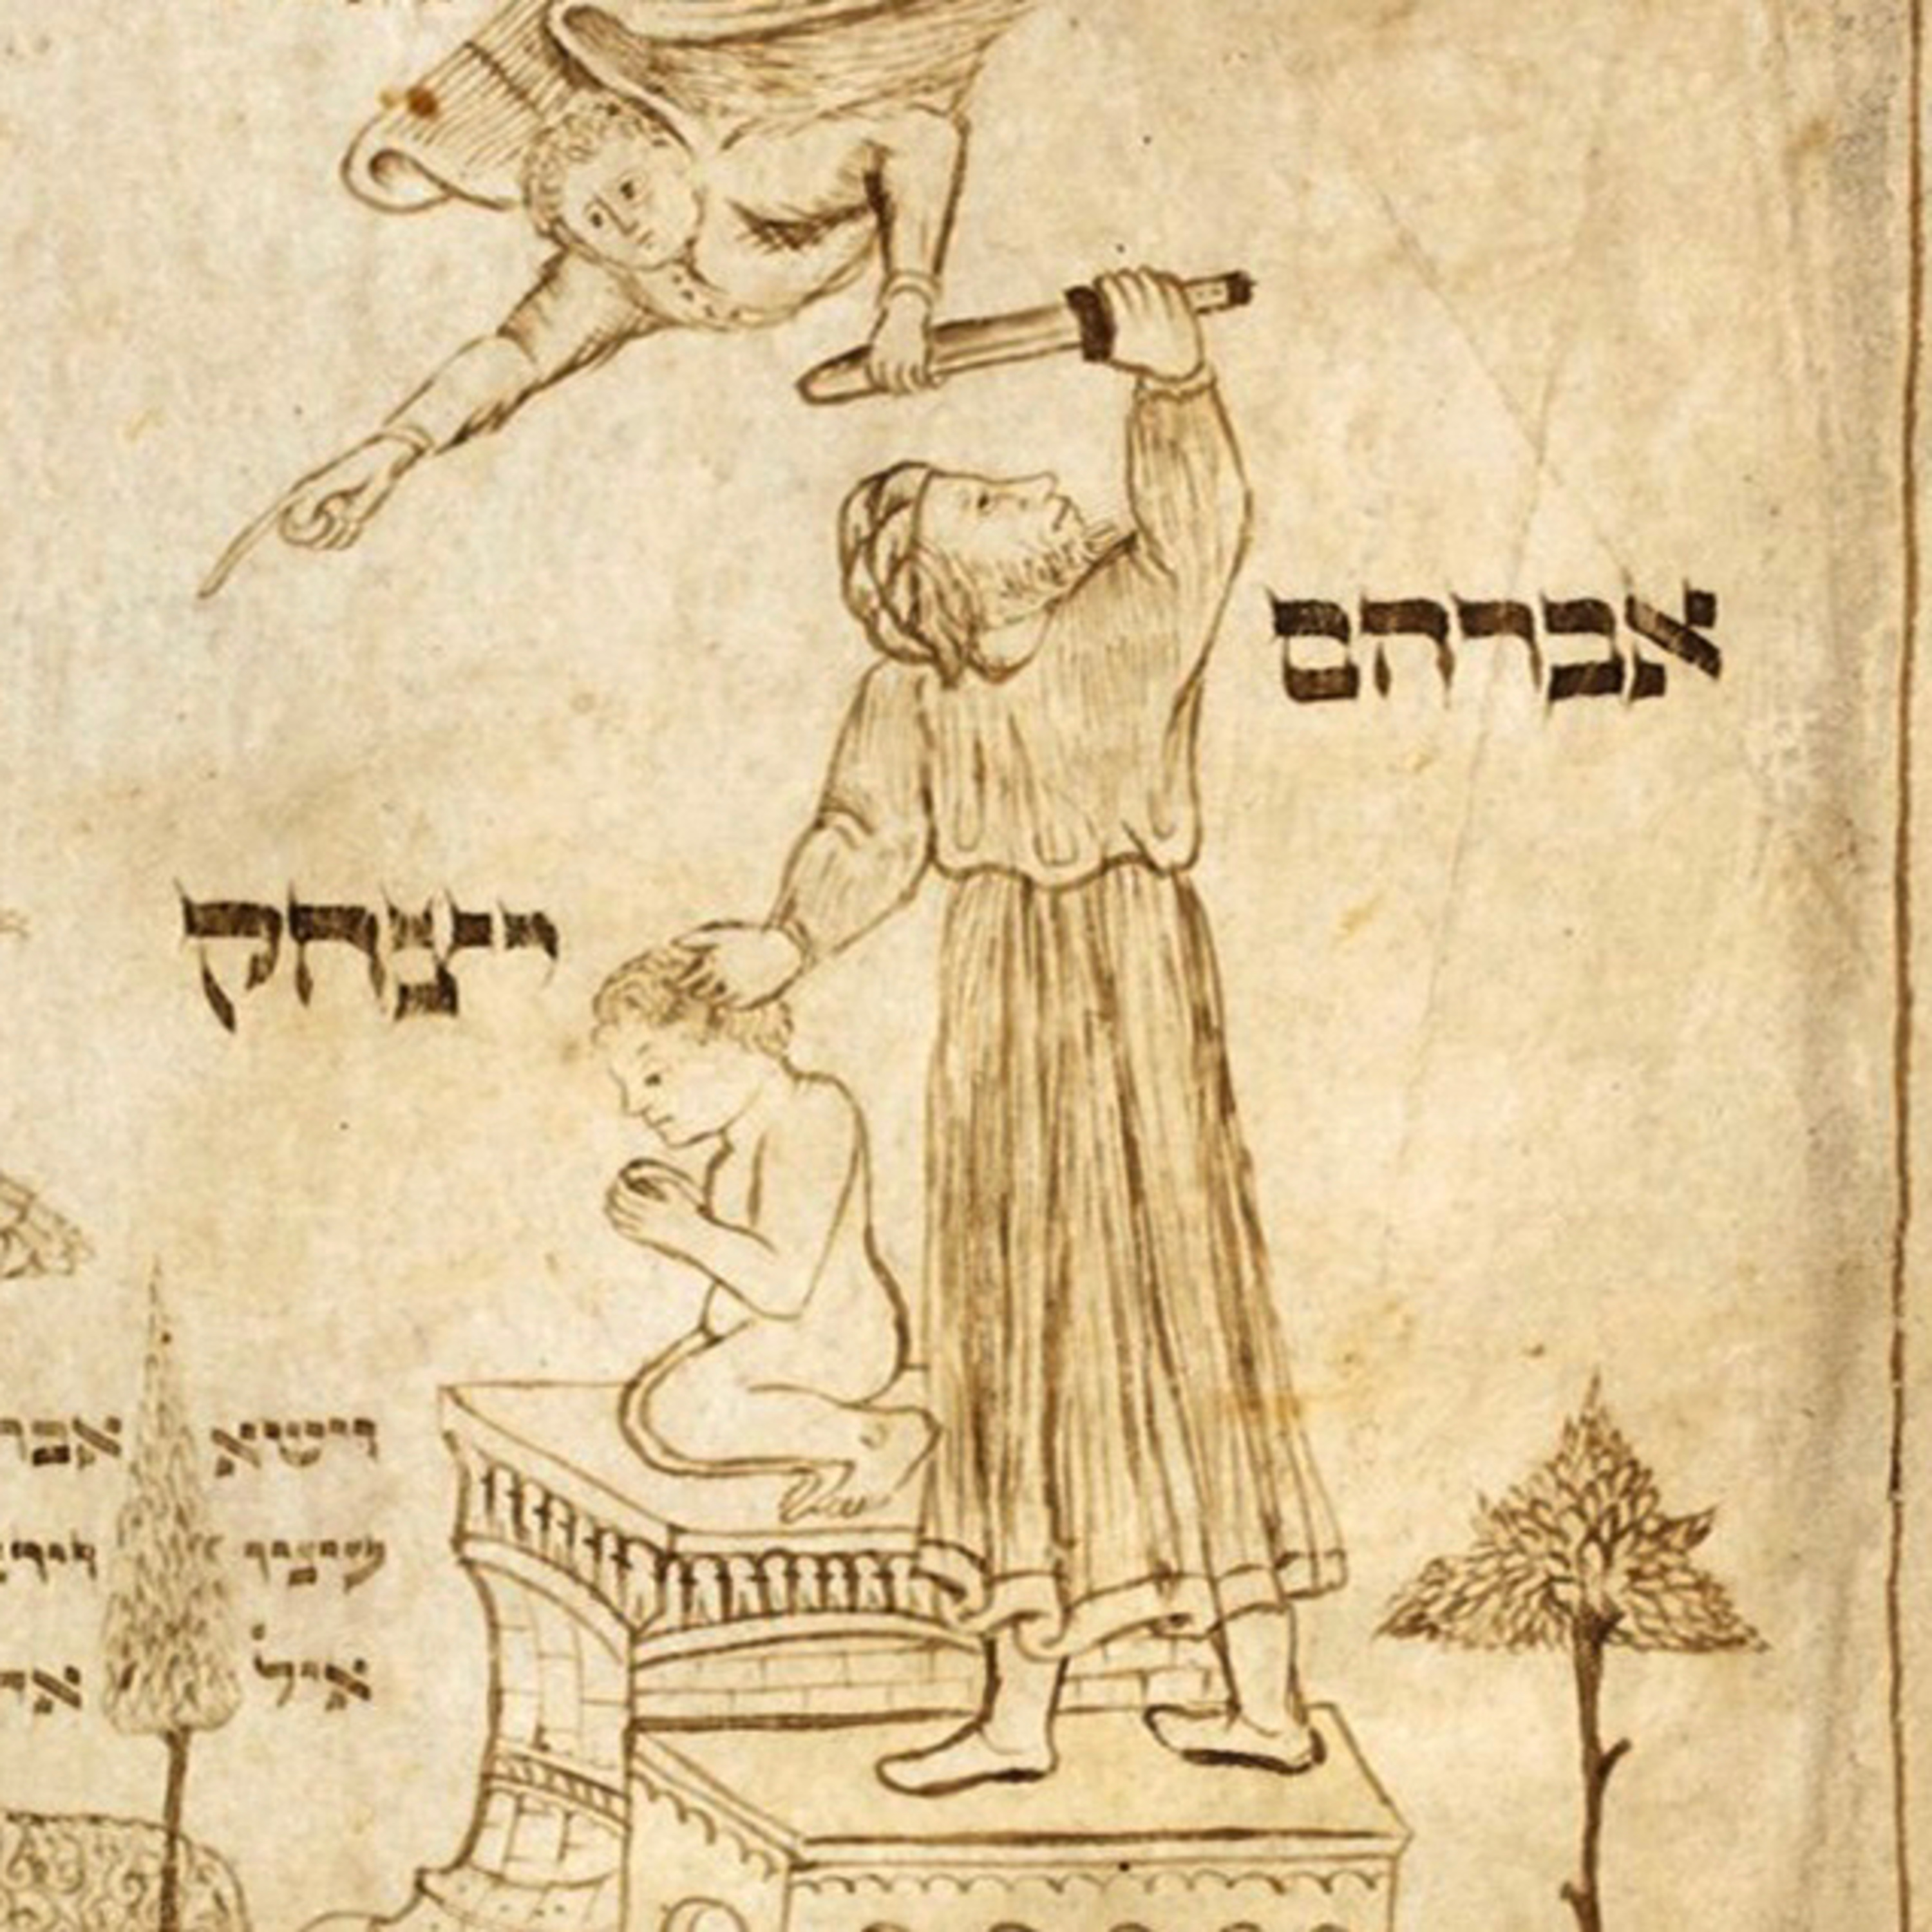 אברהם
יצחק
וישא אבר
עיניו
איל